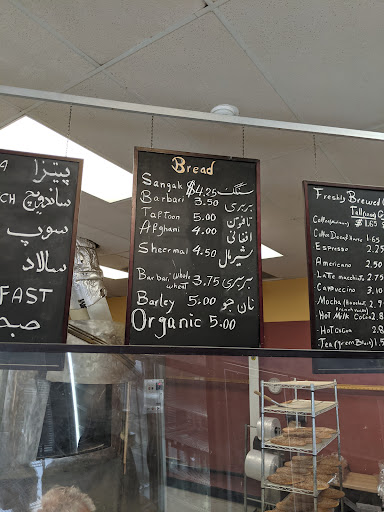 پیتزا
ساندویچ
CH
سوپ
سالاد
FAST
صبح
Bread
Sangak $4.25 سنگک
Barbari 3.50 بربری
Taftoon 5.00 تافتون
Afghani 4.00 افغانی
Sheermal 4.50 شیرمال
Barbari whole wheat 3.75 بربری
Barley 5.00 نان جو
Organic 5.00
Freshly Brewed
Coffee $1.65
Coffee Decaf 1.65
Espresso 2.25
Americano 2.50
Latte macchiato 2.75
Cappuccino 3.10
Mocha
Hot Milk Cocoa 2.8
Hot Cocoa
Tea (green Black) 1.5